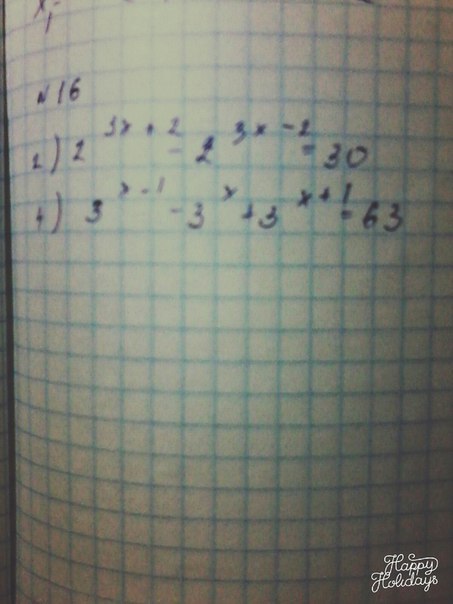 x₁
№16
2) 2^(3x+2) - 2^(3x-2) = 30
4) 3^(x-1) - 3^x + 3^(x+1) = 63
Happy
Holidays